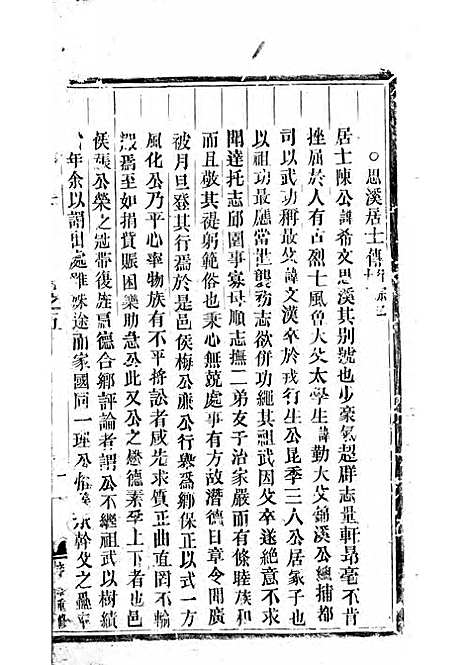 ○思溪居士傳
居士陳公諱希文思溪其別號也少豪氣超群志量軒昂毫不肯
挫屑於人有古烈士風曾大父太學生諱勤大父鏞溪公總捕都
司以武功稱最父諱文漢卒於戎行生公昆季三人公居冢子也
以祖功最應當世襲務志欲併功繩其祖武因父卒遂絕意不求
聞達托志邱園事寡母順志撫二弟友于治家嚴而有條睦族和
而且敬其禔躬範俗也秉心無競處事有方故潛德日章令聞廣
被月旦登其行焉於是邑侯梅公廉公行舉為鄉保正以式一方
風化公乃平心率物族有不平將訟者咸先求質正曲直罔不輸
服焉至如捐貲賑困樂助急公此又公之懋德素孚上下者也邑
侯張公榮之冠帶復旌扁德合鄉評論者謂公不繼祖武以樹績
年余以謂出處雖殊途而家國同一理公 幹父之蠱